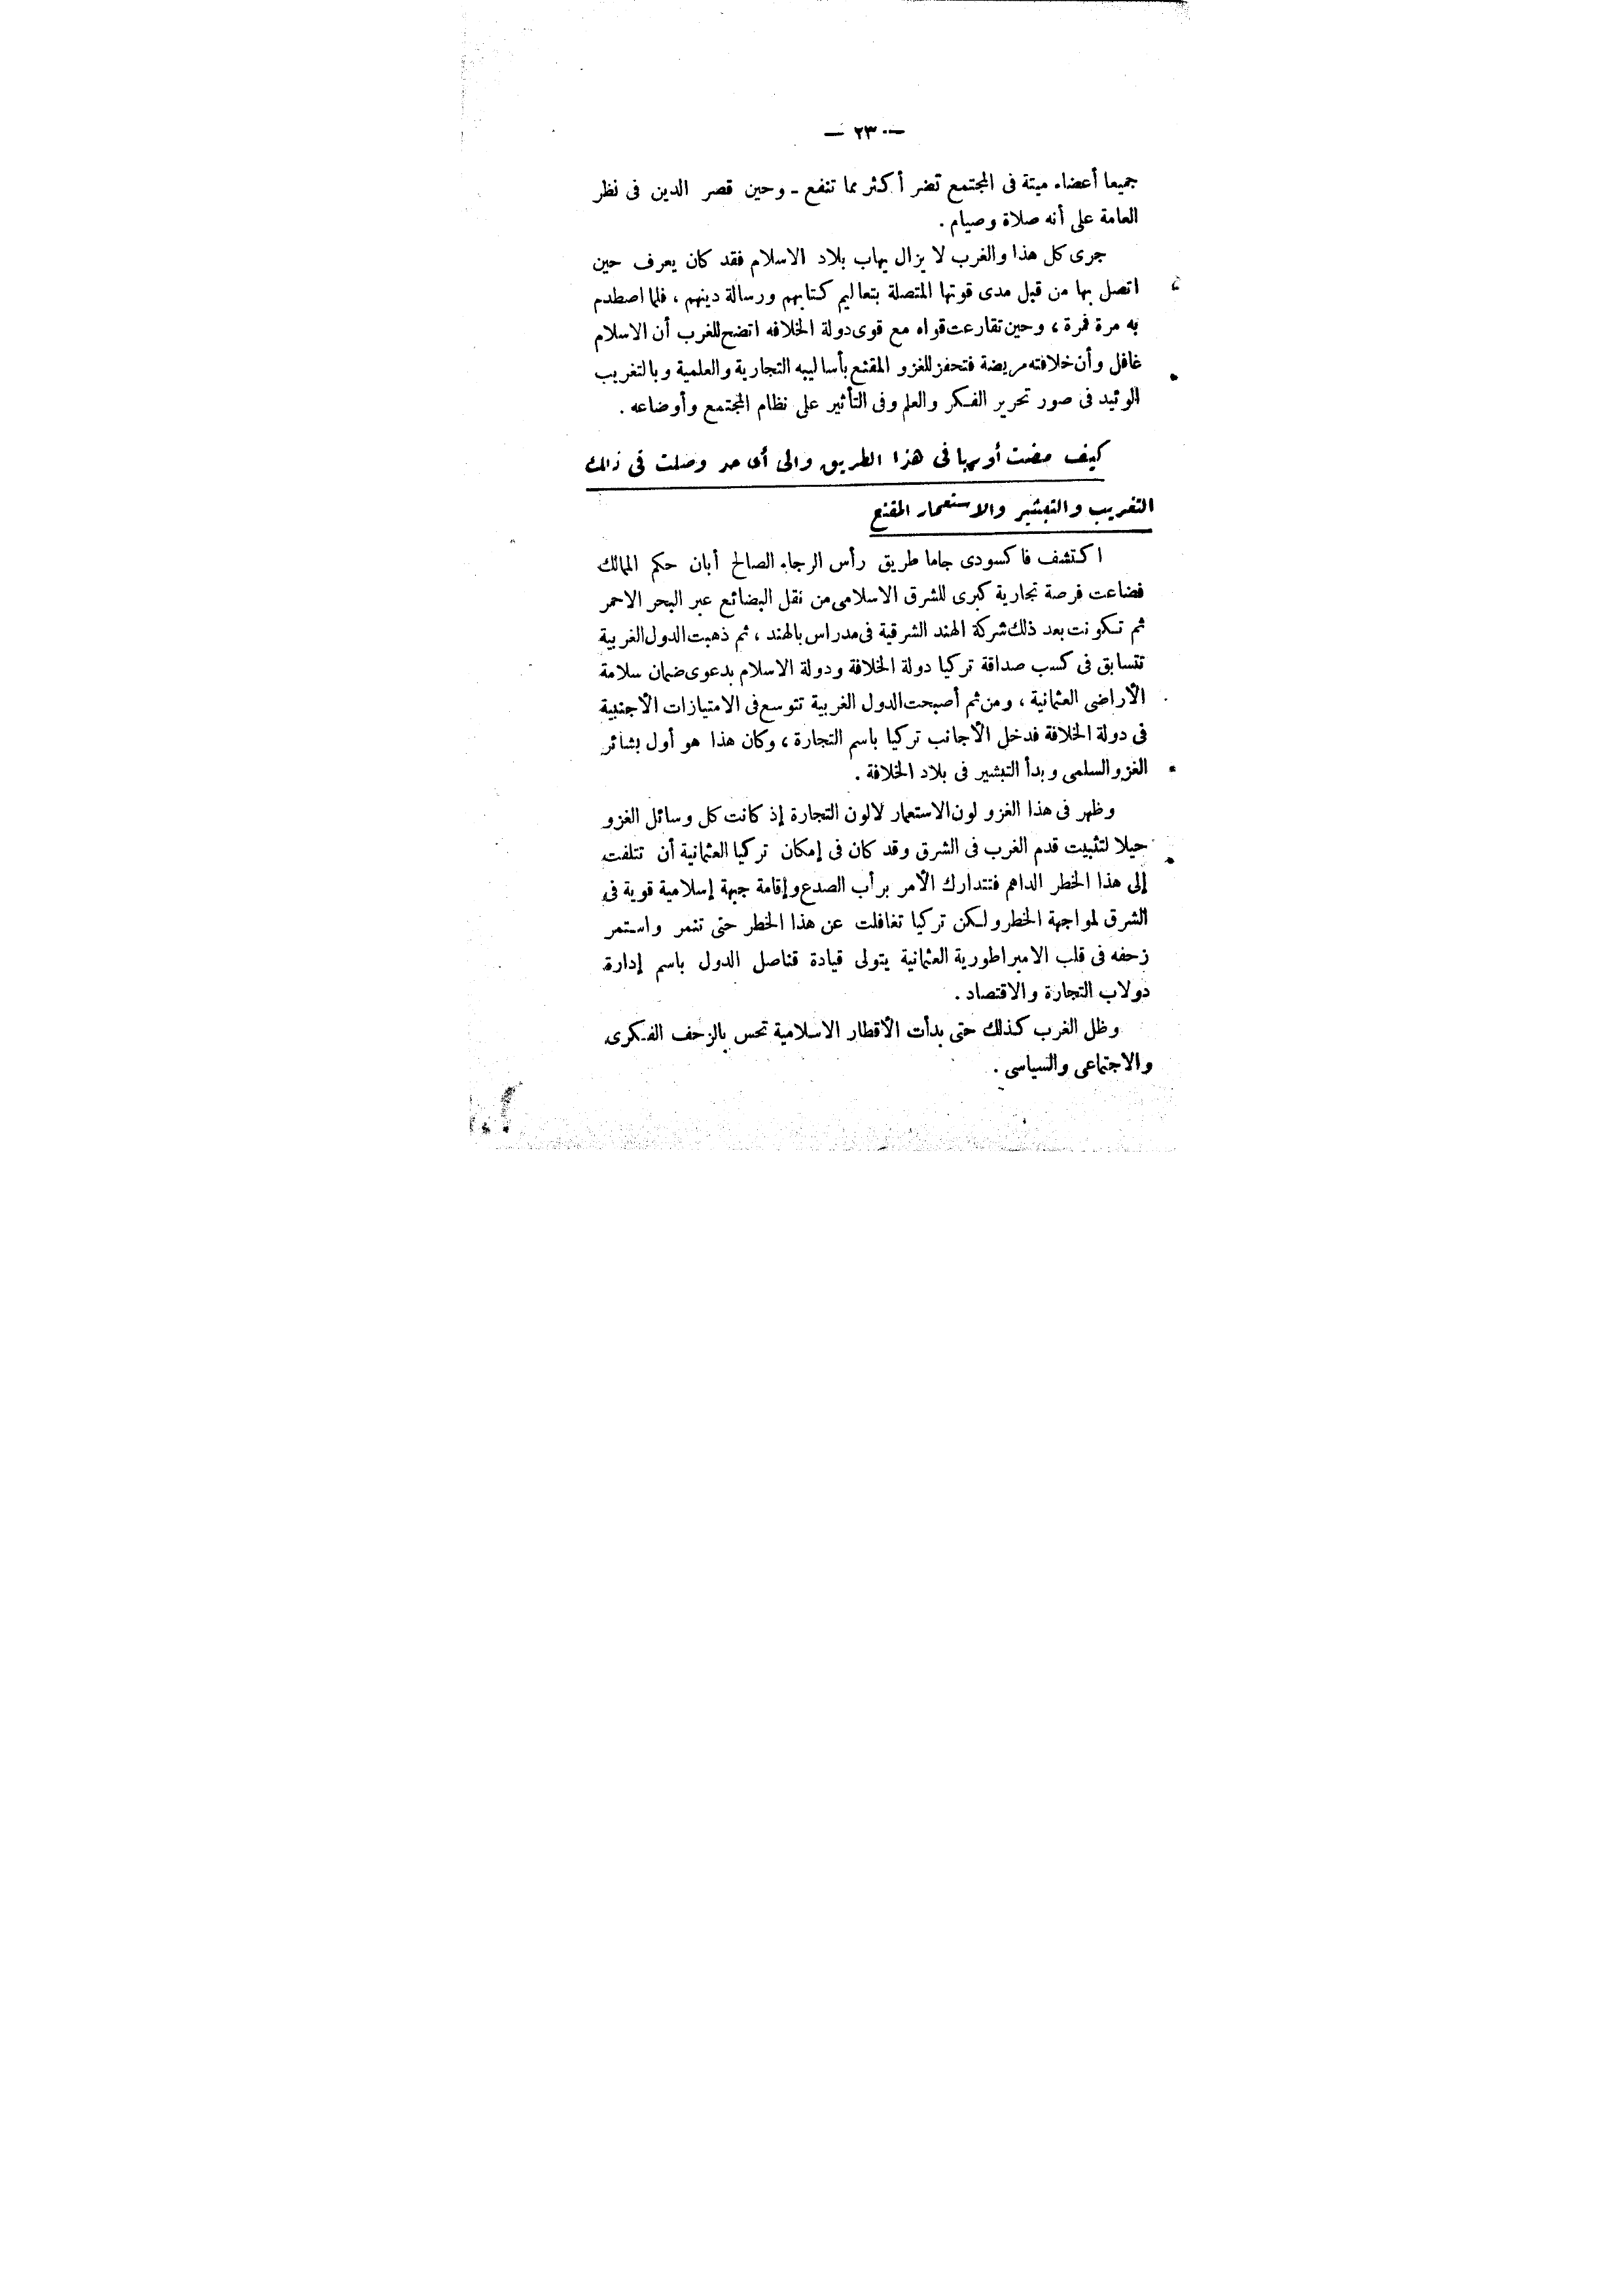 — ٢٣٠ —
جميعا أعضاء ميتة فى المجتمع تضر أكثر مما تنفع ـ وحين قصر الدين فى نظر
العامة على أنه صلاة وصيام .
جرى كل هذا والغرب لا يزال يهاب بلاد الاسلام فقد كان يعرف حين
اتصل بها من قبل مدى قوتها المتصلة بتعاليم كتابهم ورسالة دينهم ، فلما اصطدم
به مرة فمرة ، وحين تقارعت قواه مع قوى دولة الخلافه اتضح للغرب أن الاسلام
غافل وأن خلافته مريضة فتحفز للغزو المقنع بأساليبه التجارية والعلمية وبالتغريب
الوئيد فى صور تحرير الفكر والعلم وفى التأثير على نظام المجتمع وأوضاعه .
كيف مضت أوربا فى هذا الطريق والى أى حد وصلت فى ذلك
التغريب والتبشير والاستعمار المقنع
اكتشف فاكسودى جاما طريق رأس الرجاء الصالح أبان حكم المماليك
فضاعت فرصة تجارية كبرى للشرق الاسلامى من نقل البضائع عبر البحر الاحمر
ثم تكونت بعد ذلك شركة الهند الشرقية فى مدراس بالهند ، ثم ذهبت الدول الغربية
تتسابق فى كسب صداقة تركيا دولة الخلافة ودولة الاسلام بدعوى ضمان سلامة
الأراضى العثمانية ، ومن ثم أصبحت الدول الغربية تتوسع فى الامتيازات الأجنبية
فى دولة الخلافة فدخل الأجانب تركيا باسم التجارة ، وكان هذا هو أول بشائر
الغزو السلمى وبدأ التبشير فى بلاد الخلافة .
وظهر فى هذا الغزو لون الاستعمار لالون التجارة إذ كانت كل وسائل الغزو
حيلا لتثبيت قدم الغرب فى الشرق وقد كان فى إمكان تركيا العثمانية أن تتلفت
إلى هذا الخطر الداهم فتتدارك الأمر برأب الصدع وإقامة جبهة إسلامية قوية فى
الشرق لمواجهة الخطر ولكن تركيا تغافلت عن هذا الخطر حتى تنمر واستمر
زحفه فى قلب الامبراطورية العثمانية يتولى قيادة قناصل الدول باسم إدارة
دولاب التجارة والاقتصاد .
وظل الغرب كذلك حتى بدأت الأقطار الاسلامية تحس بالزحف الفكرى
والاجتماعى والسياسى .